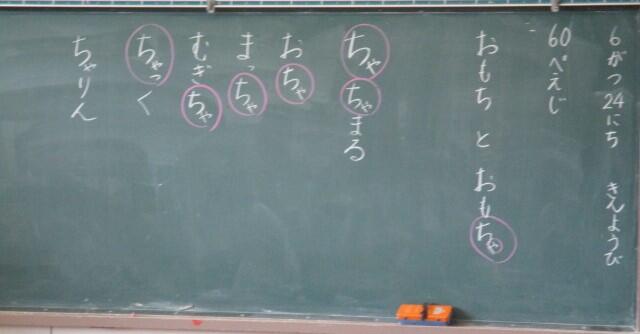 6がつ24にち きんようび
60ぺえじ
おもち と おもちゃ
ちゃ
ちゃまる
おちゃ
まっちゃ
むぎちゃ
ちゃっく
ちゃりん